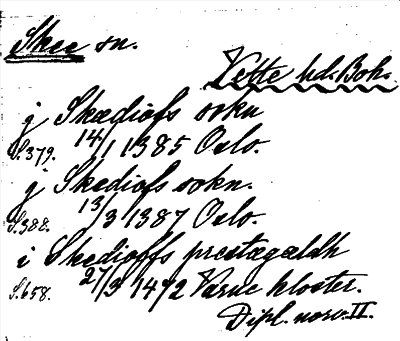 Skee sn.
Vette hd. Boh.
j Skædiofs sokn
S.379. 14/1 1385 Oslo.
j Skediofs sokn.
S.388. 13/3 1387 Oslo.
i Skedioffs prestagaldh
S.658. 27/3 1472 Varne kloster.
Dipl. norv. II.